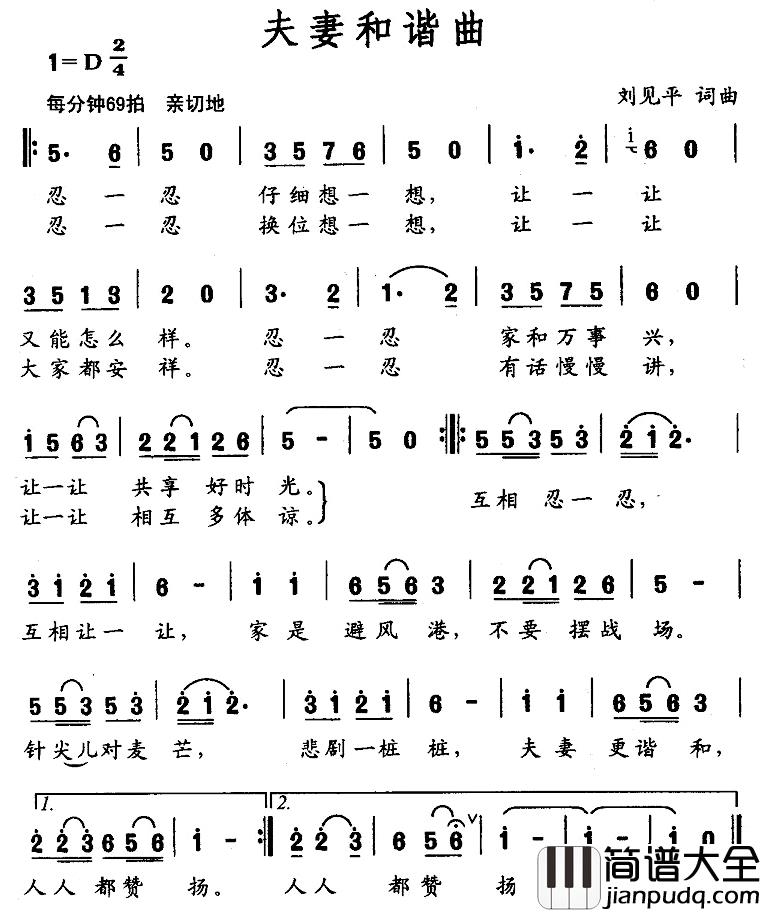 夫妻和谐曲
1=D 2/4
每分钟69拍 亲切地
刘见平 词曲
5· 6 | 5 0 | 3 5 7 6 | 5 0 | i· 2 | i 6 0 |
忍一忍 仔细想一想， 让一让
忍一忍 换位想一想， 让一让
3 5 1 3 | 2 0 | 3· 2 | 1· 2 | 3 5 7 5 | 6 0 |
又能怎么样。 忍一忍 家和万事兴，
大家都安祥。 忍一忍 有话慢慢讲，
i 5 6 3 | 2 2 1 2 6 | 5 - | 5 0 :||: 5 5 3 5 3 | 2 i 2· |
让一让 共享好时光。
让一让 相互多体谅。
互相忍一忍，
3 i 2 i | 6 - | i i | 6 5 6 3 | 2 2 1 2 6 | 5 - |
互相让一让， 家是避风港， 不要摆战场。
5 5 3 5 3 | 2 i 2· | 3 i 2 i | 6 - | i i | 6 5 6 3 |
针尖儿对麦芒， 悲剧一桩桩， 夫妻更谐和，
1. 2.
2 2 3 6 5 6 | i - :| 2 2 3 | 6 5 6 V | i - | i - | i 0 ||
人人都赞扬。 人人都赞扬
简谱大全
jianpudq.com